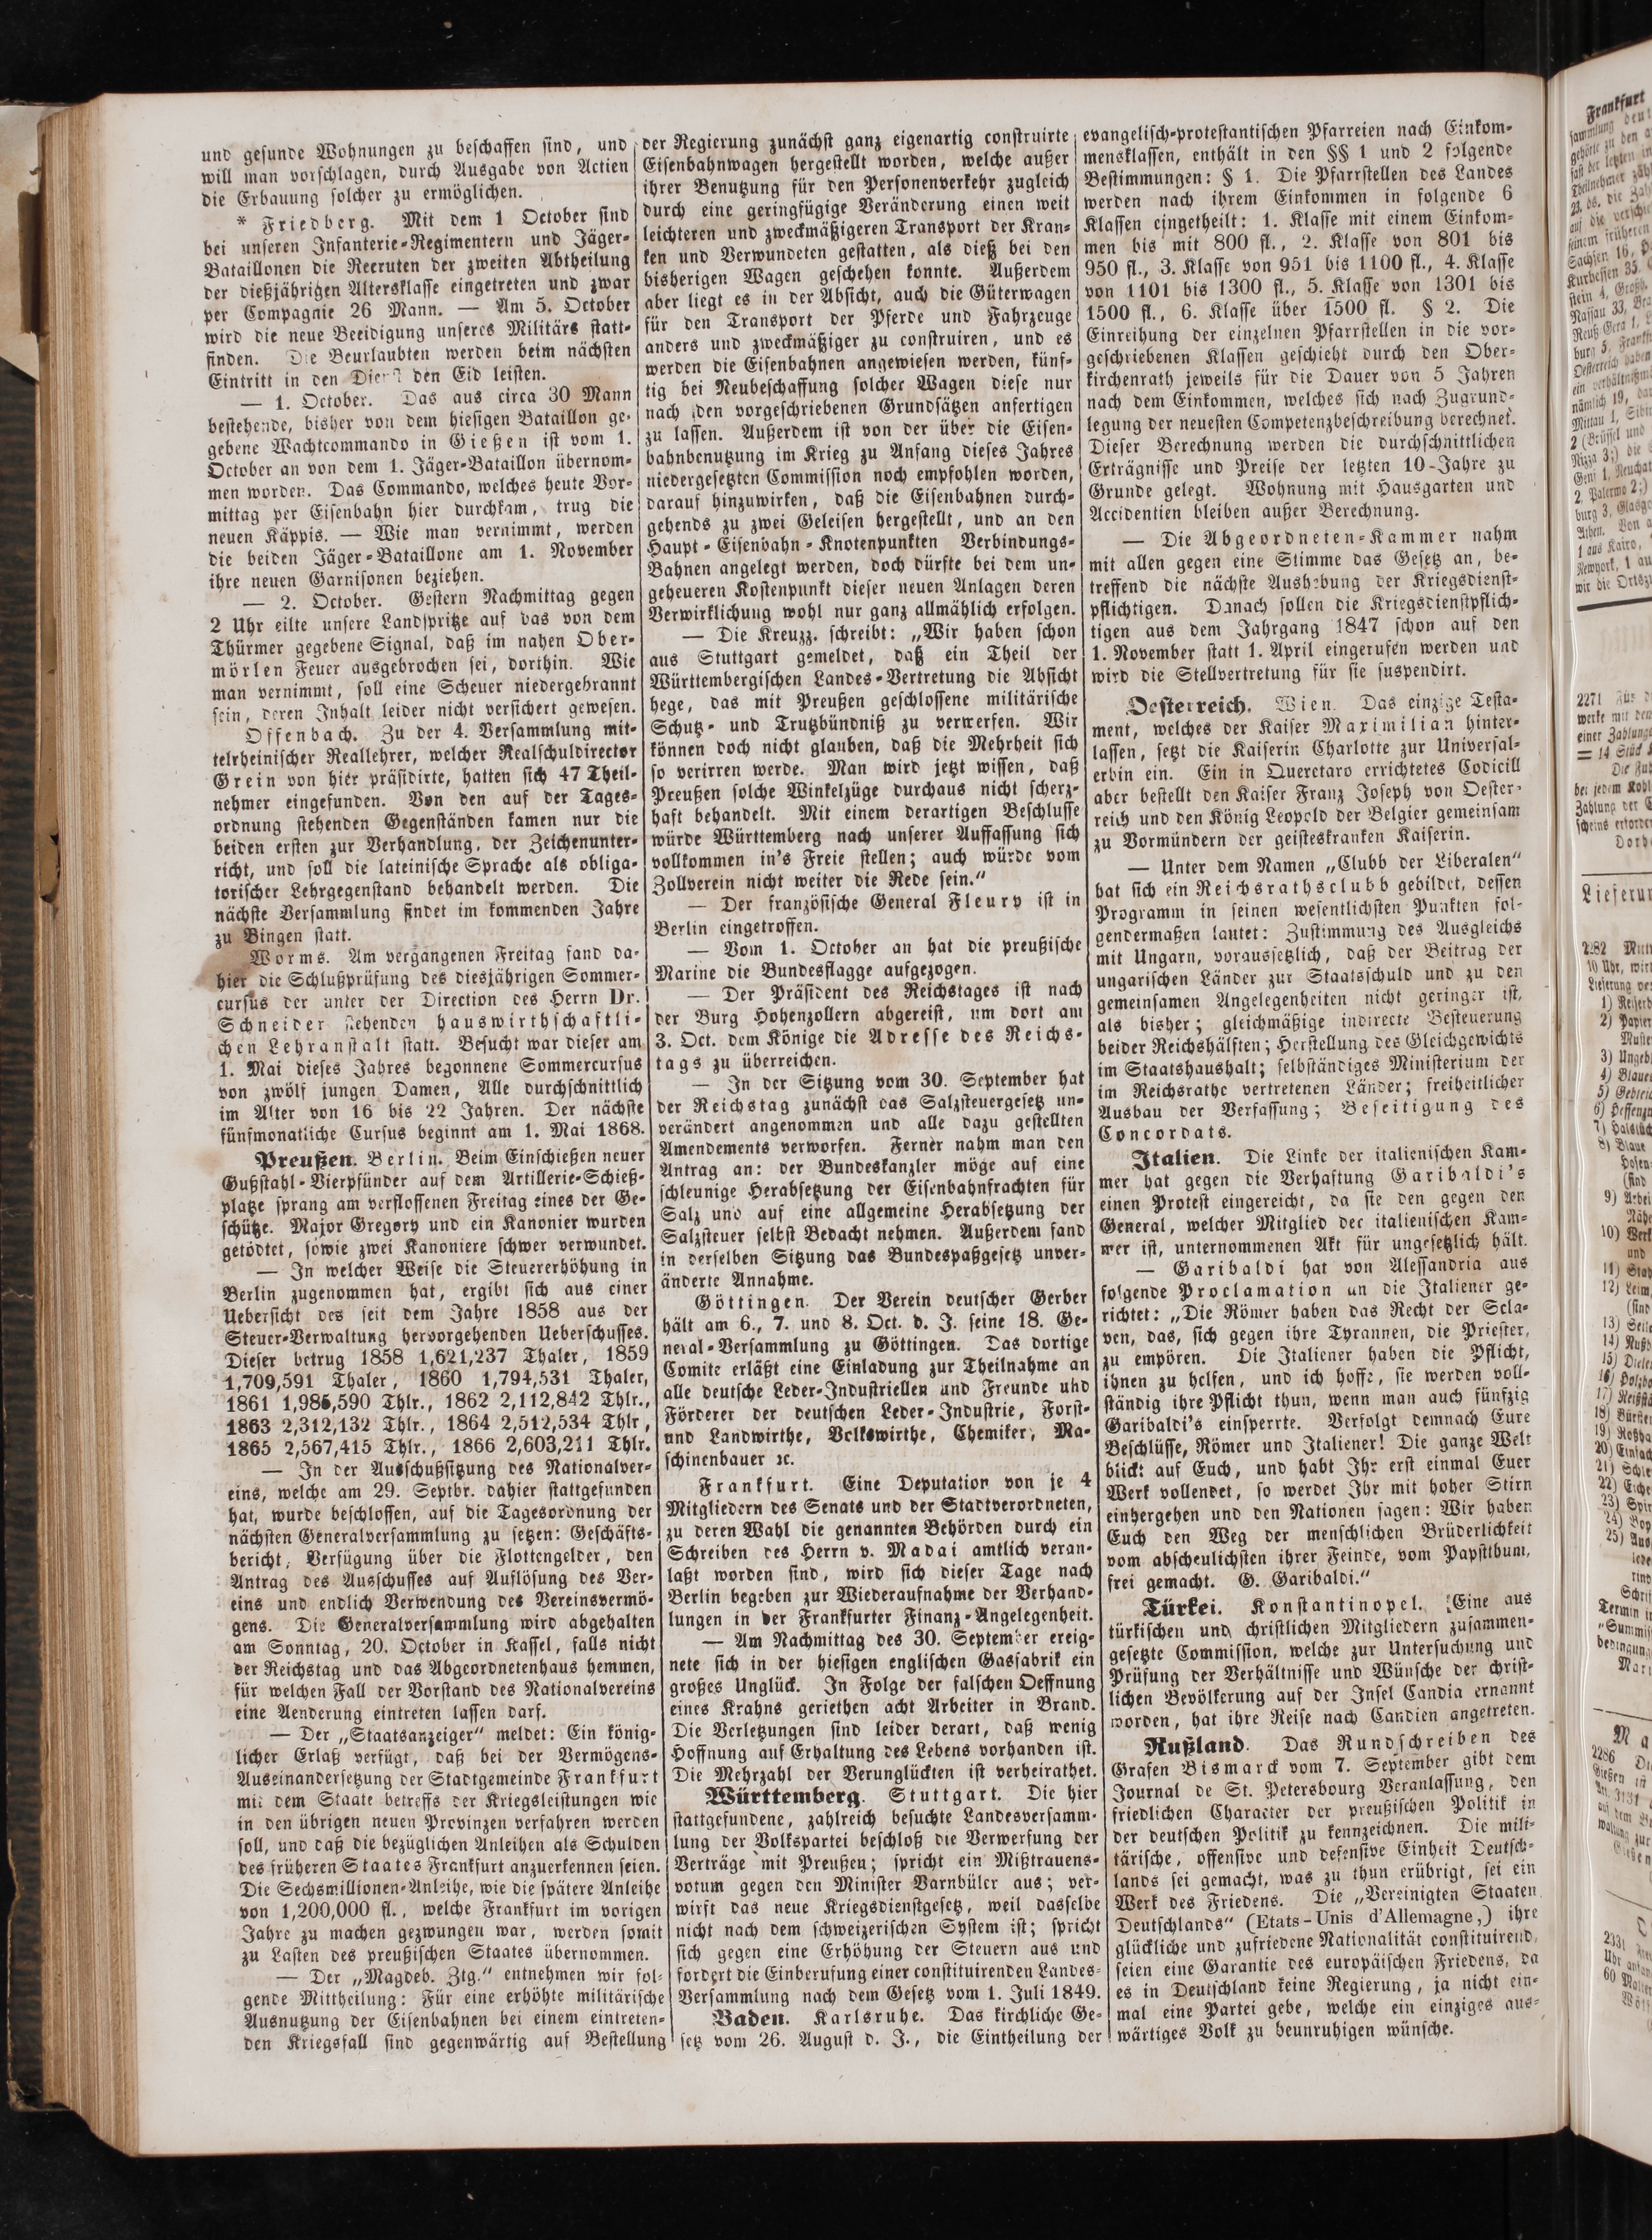 und gesunde Wohnungen zu beschaffen sind, und
will man vorschlagen, durch Ausgabe von Actien
die Erbauung solcher zu ermöglichen.
* Friedberg. Mit dem 1 October sind
bei unseren Infanterie-Regimentern und Jäger-
Bataillonen die Recruten der zweiten Abtheilung
der dießjährigen Altersklasse eingetreten und zwar
per Compagnie 26 Mann. — Am 5. October
wird die neue Beeidigung unseres Militärs statt-
finden. Die Beurlaubten werden beim nächsten
Eintritt in den Dienst den Eid leisten.
— 1. October. Das aus circa 30 Mann
bestehende, bisher von dem hiesigen Bataillon ge-
gebene Wachtcommando in Gießen ist vom 1.
October an von dem 1. Jäger-Bataillon übernom-
men worden. Das Commando, welches heute Vor-
mittag per Eisenbahn hier durchkam, trug die
neuen Käppis. — Wie man vernimmt, werden
die beiden Jäger-Bataillone am 1. November
ihre neuen Garnisonen beziehen.
— 2. October. Gestern Nachmittag gegen
2 Uhr eilte unsere Landspritze auf das von dem
Thürmer gegebene Signal, daß im nahen Ober-
mörlen Feuer ausgebrochen sei, dorthin. Wie
man vernimmt, soll eine Scheuer niedergebrannt
sein, deren Inhalt leider nicht versichert gewesen.
Offenbach. Zu der 4. Versammlung mit-
telrheinischer Reallehrer, welcher Realschuldirector
Grein von hier präsidirte, hatten sich 47 Theil-
nehmer eingefunden. Von den auf der Tages-
ordnung stehenden Gegenständen kamen nur die
beiden ersten zur Verhandlung, der Zeichenunter-
richt, und soll die lateinische Sprache als obliga-
torischer Lehrgegenstand behandelt werden. Die
nächste Versammlung findet im kommenden Jahre
zu Bingen statt.
Worms. Am vergangenen Freitag fand da-
hier die Schlußprüfung des diesjährigen Sommer-
cursus der unter der Direction des Herrn Dr.
Schneider stehenden hauswirthschaftli-
chen Lehranstalt statt. Besucht war dieser am
1. Mai dieses Jahres begonnene Sommercursus
von zwölf jungen Damen, Alle durchschnittlich
im Alter von 16 bis 22 Jahren. Der nächste
fünfmonatliche Cursus beginnt am 1. Mai 1868.
Preußen. Berlin. Beim Einschießen neuer
Gußstahl-Vierpfünder auf dem Artillerie-Schieß-
platze sprang am verflossenen Freitag eines der Ge-
schütze. Major Gregory und ein Kanonier wurden
getödtet, sowie zwei Kanoniere schwer verwundet.
— In welcher Weise die Steuererhöhung in
Berlin zugenommen hat, ergibt sich aus einer
Uebersicht des seit dem Jahre 1858 aus der
Steuer-Verwaltung hervorgehenden Ueberschusses.
Dieser betrug 1858 1,621,237 Thaler, 1859
1,709,591 Thaler, 1860 1,794,531 Thaler,
1861 1,985,590 Thlr., 1862 2,112,842 Thlr.,
1863 2,312,132 Thlr., 1864 2,512,534 Thlr,
1865 2,567,415 Thlr., 1866 2,603,211 Thlr.
— In der Ausschußsitzung des Nationalver-
eins, welche am 29. Septbr. dahier stattgefunden
hat, wurde beschlossen, auf die Tagesordnung der
nächsten Generalversammlung zu setzen: Geschäfts-
bericht, Verfügung über die Flottengelder, den
Antrag des Ausschusses auf Auflösung des Ver-
eins und endlich Verwendung des Vereinsvermö-
gens. Die Generalversammlung wird abgehalten
am Sonntag, 20. October in Kassel, falls nicht
der Reichstag und das Abgeordnetenhaus hemmen,
für welchen Fall der Vorstand des Nationalvereins
eine Aenderung eintreten lassen darf.
— Der „Staatsanzeiger“ meldet: Ein könig-
licher Erlaß verfügt, daß bei der Vermögens-
Auseinandersetzung der Stadtgemeinde Frankfurt
mit dem Staate betreffs der Kriegsleistungen wie
in den übrigen neuen Provinzen verfahren werden
soll, und daß die bezüglichen Anleihen als Schulden
des früheren Staates Frankfurt anzuerkennen seien.
Die Sechsmillionen-Anleihe, wie die spätere Anleihe
von 1,200,000 fl., welche Frankfurt im vorigen
Jahre zu machen gezwungen war, werden somit
zu Lasten des preußischen Staates übernommen.
— Der „Magdeb. Ztg.“ entnehmen wir fol-
gende Mittheilung: Für eine erhöhte militärische
Ausnutzung der Eisenbahnen bei einem eintreten-
den Kriegsfall sind gegenwärtig auf Bestellung
der Regierung zunächst ganz eigenartig construirte
Eisenbahnwagen hergestellt worden, welche außer
ihrer Benutzung für den Personenverkehr zugleich
durch eine geringfügige Veränderung einen weit
leichteren und zweckmäßigeren Transport der Kran-
ken und Verwundeten gestatten, als dieß bei den
bisherigen Wagen geschehen konnte. Außerdem
aber liegt es in der Absicht, auch die Güterwagen
für den Transport der Pferde und Fahrzeuge
anders und zweckmäßiger zu construiren, und es
werden die Eisenbahnen angewiesen werden, künf-
tig bei Neubeschaffung solcher Wagen diese nur
nach den vorgeschriebenen Grundsätzen anfertigen
zu lassen. Außerdem ist von der über die Eisen-
bahnbenutzung im Krieg zu Anfang dieses Jahres
niedergesetzten Commission noch empfohlen worden,
darauf hinzuwirken, daß die Eisenbahnen durch-
gehends zu zwei Geleisen hergestellt, und an den
Haupt-Eisenbahn-Knotenpunkten Verbindungs-
Bahnen angelegt werden, doch dürfte bei dem un-
geheueren Kostenpunkt dieser neuen Anlagen deren
Verwirklichung wohl nur ganz allmählich erfolgen.
— Die Kreuzz. schreibt: „Wir haben schon
aus Stuttgart gemeldet, daß ein Theil der
Württembergischen Landes-Vertretung die Absicht
hege, das mit Preußen geschlossene militärische
Schutz- und Trutzbündniß zu verwerfen. Wir
können doch nicht glauben, daß die Mehrheit sich
so verirren werde. Man wird jetzt wissen, daß
Preußen solche Winkelzüge durchaus nicht scherz-
haft behandelt. Mit einem derartigen Beschlusse
würde Württemberg nach unserer Auffassung sich
vollkommen in's Freie stellen; auch würde vom
Zollverein nicht weiter die Rede sein.“
— Der französische General Fleury ist in
Berlin eingetroffen.
— Vom 1. October an hat die preußische
Marine die Bundesflagge aufgezogen.
— Der Präsident des Reichstages ist nach
der Burg Hohenzollern abgereist, um dort am
3. Oct. dem Könige die Adresse des Reichs-
tags zu überreichen.
— In der Sitzung vom 30. September hat
der Reichstag zunächst das Salzsteuergesetz un-
verändert angenommen und alle dazu gestellten
Amendements verworfen. Ferner nahm man den
Antrag an: der Bundeskanzler möge auf eine
schleunige Herabsetzung der Eisenbahnfrachten für
Salz und auf eine allgemeine Herabsetzung der
Salzsteuer selbst Bedacht nehmen. Außerdem fand
in derselben Sitzung das Bundespaßgesetz unver-
änderte Annahme.
Göttingen. Der Verein deutscher Gerber
hält am 6., 7. und 8. Oct. d. J. seine 18. Ge-
neral-Versammlung zu Göttingen. Das dortige
Comite erläßt eine Einladung zur Theilnahme an
alle deutsche Leder-Industriellen und Freunde und
Förderer der deutschen Leder-Industrie, Forst-
und Landwirthe, Volkswirthe, Chemiker, Ma-
schinenbauer ꝛc.
Frankfurt. Eine Deputation von je 4
Mitgliedern des Senats und der Stadtverordneten,
zu deren Wahl die genannten Behörden durch ein
Schreiben des Herrn v. Madai amtlich veran-
laßt worden sind, wird sich dieser Tage nach
Berlin begeben zur Wiederaufnahme der Verhand-
lungen in der Frankfurter Finanz-Angelegenheit.
— Am Nachmittag des 30. September ereig-
nete sich in der hiesigen englischen Gasfabrik ein
großes Unglück. In Folge der falschen Oeffnung
eines Krahns geriethen acht Arbeiter in Brand.
Die Verletzungen sind leider derart, daß wenig
Hoffnung auf Erhaltung des Lebens vorhanden ist.
Die Mehrzahl der Verunglückten ist verheirathet.
Württemberg. Stuttgart. Die hier
stattgefundene, zahlreich besuchte Landesversamm-
lung der Volkspartei beschloß die Verwerfung der
Verträge mit Preußen; spricht ein Mißtrauens-
votum gegen den Minister Varnbüler aus; ver-
wirft das neue Kriegsdienstgesetz, weil dasselbe
nicht nach dem schweizerischen System ist; spricht
sich gegen eine Erhöhung der Steuern aus und
fordert die Einberufung einer constituirenden Landes-
Versammlung nach dem Gesetz vom 1. Juli 1849.
Baden. Karlsruhe. Das kirchliche Ge-
setz vom 26. August d. J., die Eintheilung der
evangelisch-protestantischen Pfarreien nach Einkom-
mensklassen, enthält in den §§ 1 und 2 folgende
Bestimmungen: § 1. Die Pfarrstellen des Landes
werden nach ihrem Einkommen in folgende 6
Klassen eingetheilt: 1. Klasse mit einem Einkom-
men bis mit 800 fl., 2. Klasse von 801 bis
950 fl., 3. Klasse von 951 bis 1100 fl., 4. Klasse
von 1101 bis 1300 fl., 5. Klasse von 1301 bis
1500 fl., 6. Klasse über 1500 fl. § 2. Die
Einreihung der einzelnen Pfarrstellen in die vor-
geschriebenen Klassen geschieht durch den Ober-
kirchenrath jeweils für die Dauer von 5 Jahren
nach dem Einkommen, welches sich nach Zugrund-
legung der neuesten Competenzbeschreibung berechnet.
Dieser Berechnung werden die durchschnittlichen
Erträgnisse und Preise der letzten 10-Jahre zu
Grunde gelegt. Wohnung mit Hausgarten und
Accidentien bleiben außer Berechnung.
— Die Abgeordneten-Kammer nahm
mit allen gegen eine Stimme das Gesetz an, be-
treffend die nächste Aushebung der Kriegsdienst-
pflichtigen. Danach sollen die Kriegsdienstpflich-
tigen aus dem Jahrgang 1847 schon auf den
1. November statt 1. April eingerufen werden und
wird die Stellvertretung für sie suspendirt.
Oesterreich. Wien. Das einzige Testa-
ment, welches der Kaiser Maximilian hinter-
lassen, setzt die Kaiserin Charlotte zur Universal-
erbin ein. Ein in Queretaro errichtetes Codicill
aber bestellt den Kaiser Franz Joseph von Oester-
reich und den König Leopold der Belgier gemeinsam
zu Vormündern der geisteskranken Kaiserin.
— Unter dem Namen „Clubb der Liberalen“
hat sich ein Reichsrathsclubb gebildet, dessen
Programm in seinen wesentlichsten Punkten fol-
gendermaßen lautet: Zustimmung des Ausgleichs
mit Ungarn, voraussetzlich, daß der Beitrag der
ungarischen Länder zur Staatsschuld und zu den
gemeinsamen Angelegenheiten nicht geringer ist,
als bisher; gleichmäßige indirecte Besteuerung
beider Reichshälften; Herstellung des Gleichgewichts
im Staatshaushalt; selbständiges Ministerium der
im Reichsrathe vertretenen Länder; freiheitlicher
Ausbau der Verfassung; Beseitigung des
Concordats.
Italien. Die Linke der italienischen Kam-
mer hat gegen die Verhaftung Garibaldi's
einen Protest eingereicht, da sie den gegen den
General, welcher Mitglied der italienischen Kam-
mer ist, unternommenen Akt für ungesetzlich hält.
— Garibaldi hat von Alessandria aus
folgende Proclamation an die Italiener ge-
richtet: „Die Römer haben das Recht der Scla-
ven, das, sich gegen ihre Tyrannen, die Priester,
zu empören. Die Italiener haben die Pflicht,
ihnen zu helfen, und ich hoffe, sie werden voll-
ständig ihre Pflicht thun, wenn man auch fünfzig
Garibaldi's einsperrte. Verfolgt demnach Eure
Beschlüsse, Römer und Italiener! Die ganze Welt
blickt auf Euch, und habt Ihr erst einmal Euer
Werk vollendet, so werdet Ihr mit hoher Stirn
einhergehen und den Nationen sagen: Wir haben
Euch den Weg der menschlichen Brüderlichkeit
vom abscheulichsten ihrer Feinde, vom Papstthum,
frei gemacht. G. Garibaldi.“
Türkei. Konstantinopel. Eine aus
türkischen und christlichen Mitgliedern zusammen-
gesetzte Commission, welche zur Untersuchung und
Prüfung der Verhältnisse und Wünsche der christ-
lichen Bevölkerung auf der Insel Candia ernannt
worden, hat ihre Reise nach Candien angetreten.
Rußland. Das Rundschreiben des
Grafen Bismarck vom 7. September gibt dem
Journal de St. Petersbourg Veranlassung, den
friedlichen Character der preußischen Politik in
der deutschen Politik zu kennzeichnen. Die mili-
tärische, offensive und defensive Einheit Deutsch-
lands sei gemacht, was zu thun erübrigt, sei ein
Werk des Friedens. Die „Vereinigten Staaten
Deutschlands“ (Etats-Unis d'Allemagne,) ihre
glückliche und zufriedene Nationalität constituirend,
seien eine Garantie des europäischen Friedens, da
es in Deutschland keine Regierung, ja nicht ein-
mal eine Partei gebe, welche ein einziges aus-
wärtiges Volk zu beunruhigen wünsche.